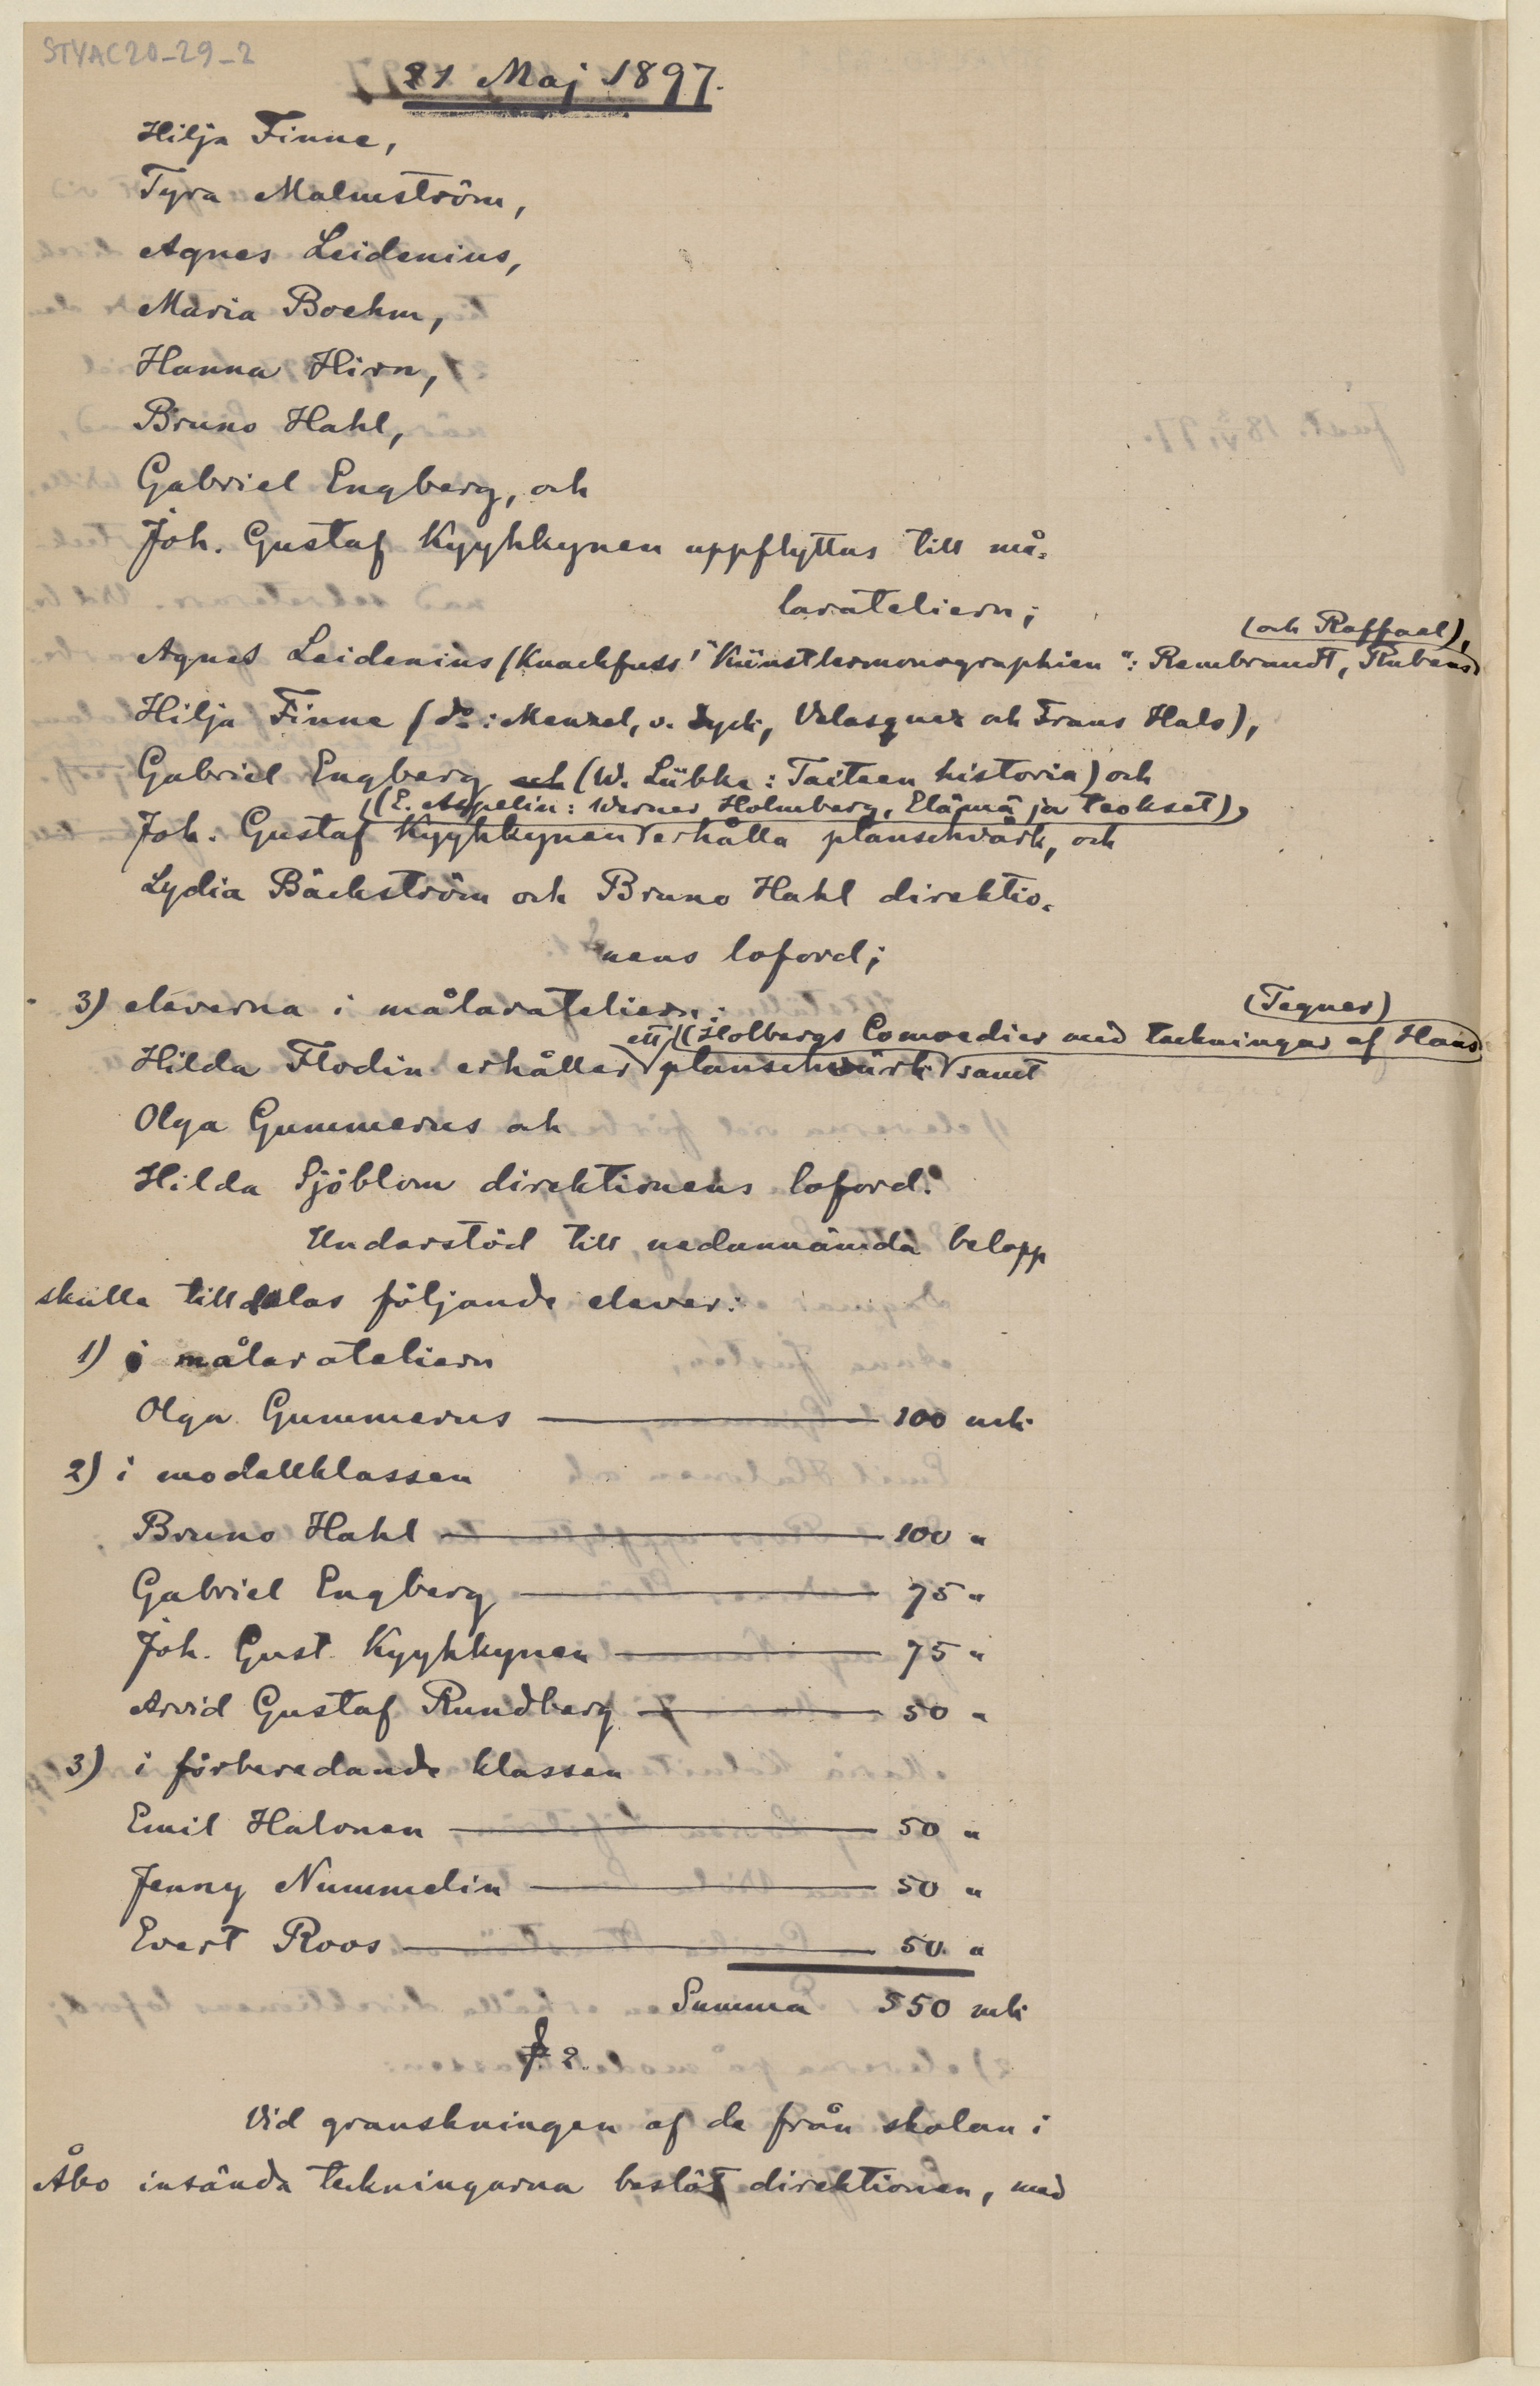 STYAC20-29-2
21 Maj 1897.
Hilja Finne,
Tyra Malmström,
Agnes Leidenius,
Maria Boehm,
Hanna Hirn,
Bruno Hahl,
Gabriel Engberg, och
Joh. Gustaf Kyyhkynen uppflyttas till må-
larateliern;
(och Raffael),
Agnes Leidenius (Knackfuss' "Künstlermonographien": Rembrandt, Rubens
Hilja Finne (do: Menzel, v. Dyck, Velasquez och Frans Hals),
Gabriel Engberg och (W. Lübke: Taiteen historia) och
(E. Aspelin: Werner Holmberg, Elämä ja teokset),
Joh. Gustaf Kyyhkynen erhålla planschvärk, och
Lydia Bäckström och Bruno Hahl direktio-
nens loford;
3) eleverna i målarateliern:
(Tegner)
ett (Holbergs Comoedier med teckningar af Hans
Hilda Flodin erhåller planschvärk samt
Olga Gummerus och
Hilda Sjöblom direktionens loford.
Understöd till nedannämda belopp
skulle tilldelas följande elever:
1) i målarateliern
Olga Gummerus — 100 mk
2) i modellklassen
Bruno Hahl — 100 "
Gabriel Engberg — 75 "
Joh. Gust. Kyyhkynen — 75 "
Arvid Gustaf Rundberg — 50 "
3) i förberedande klassen
Emil Halonen — 50 "
Jenny Nummelin — 50 "
Evert Roos — 50 "
Summa 550 mk
§ 2.
Vid granskningen af de från skolan i
Åbo insända teckningarna beslöt direktionen, med